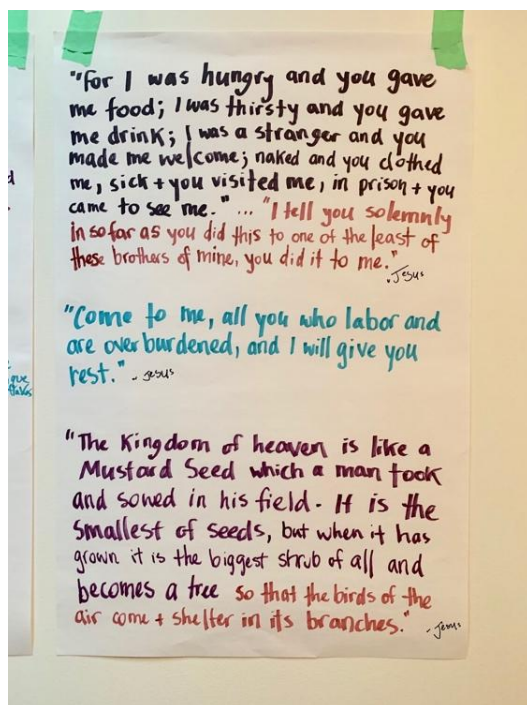 "For I was hungry and you gave
me food; I was thirsty and you gave
me drink; I was a stranger and you
made me welcome; naked and you clothed
me, sick + you visited me, in prison + you
came to see me." ... "I tell you solemnly
in so far as you did this to one of the least of
these brothers of mine, you did it to me."
- Jesus
"Come to me, all you who labor and
are overburdened, and I will give you
rest." - Jesus
"The Kingdom of heaven is like a
Mustard Seed which a man took
and sowed in his field. It is the
smallest of seeds, but when it has
grown it is the biggest shrub of all and
becomes a tree so that the birds of the
air come + shelter in its branches."
- Jesus